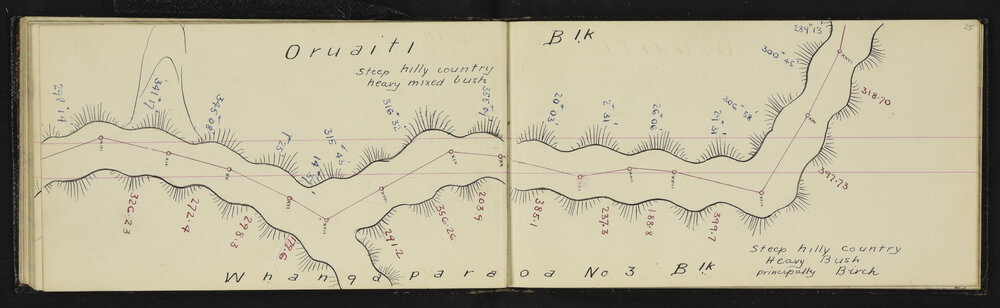 25
Oruaiti Blk
Steep hilly country
heavy mixed bush
292° 14
341° 17
345° 08'
1° 25'
316° 45
14° 51'
316° 52
355° 09
20° 03'
2° 31'
26° 06'
29° 31'
306° 58
300° 45'
289° 13
326.23
272.4
298.3
79.6
291.2
356.26
203.9
385.1
237.3
188.8
399.7
397.73
318.70
Steep hilly country
Heavy Bush
principally Birch
Whangaparaoa No 3 Blk